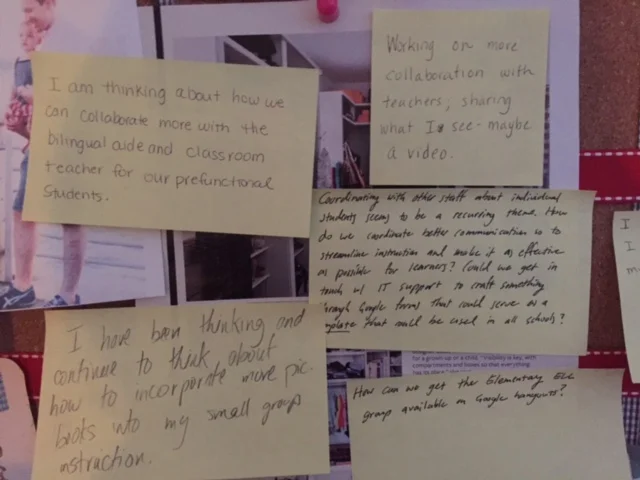 I am thinking about how we
can collaborate more with the
bilingual aide and classroom
teacher for our prefunctional
Students.
Working on more
collaboration with
teachers; sharing
what I see - maybe
a video.
Coordinating with other staff about individual
students seems to be a recurring theme. How
do we coordinate better communication so to
streamline instruction and make it as effective
as possible for learners? Could we get in
touch w/ IT support to craft something
through Google forms that could serve as a
that could be used in all schools?
I
I
m
I have been thinking and
continue to think about
how to incorporate more pic-
into my small group
instruction.
for a grown-up or a child. "Visibility is key, with
compartments and boxes so that everything
has its place,"
How can we get the Elementary ELL
group available on Google hangouts?